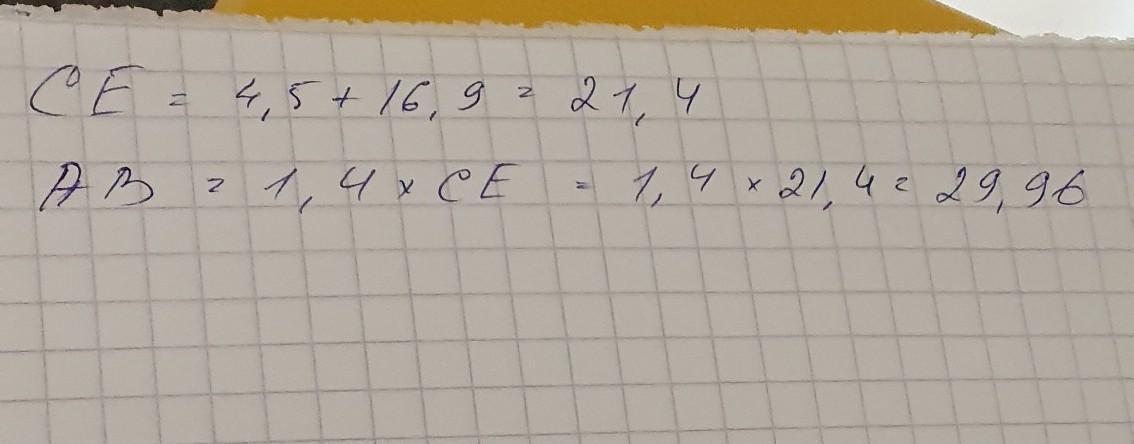 CE = 4,5 + 16,9 = 21,4
AB = 1,4 × CE = 1,4 × 21,4 = 29,96